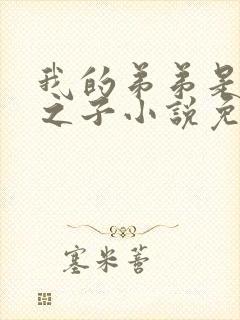 我的弟弟是
之子小説免
塞米蒈